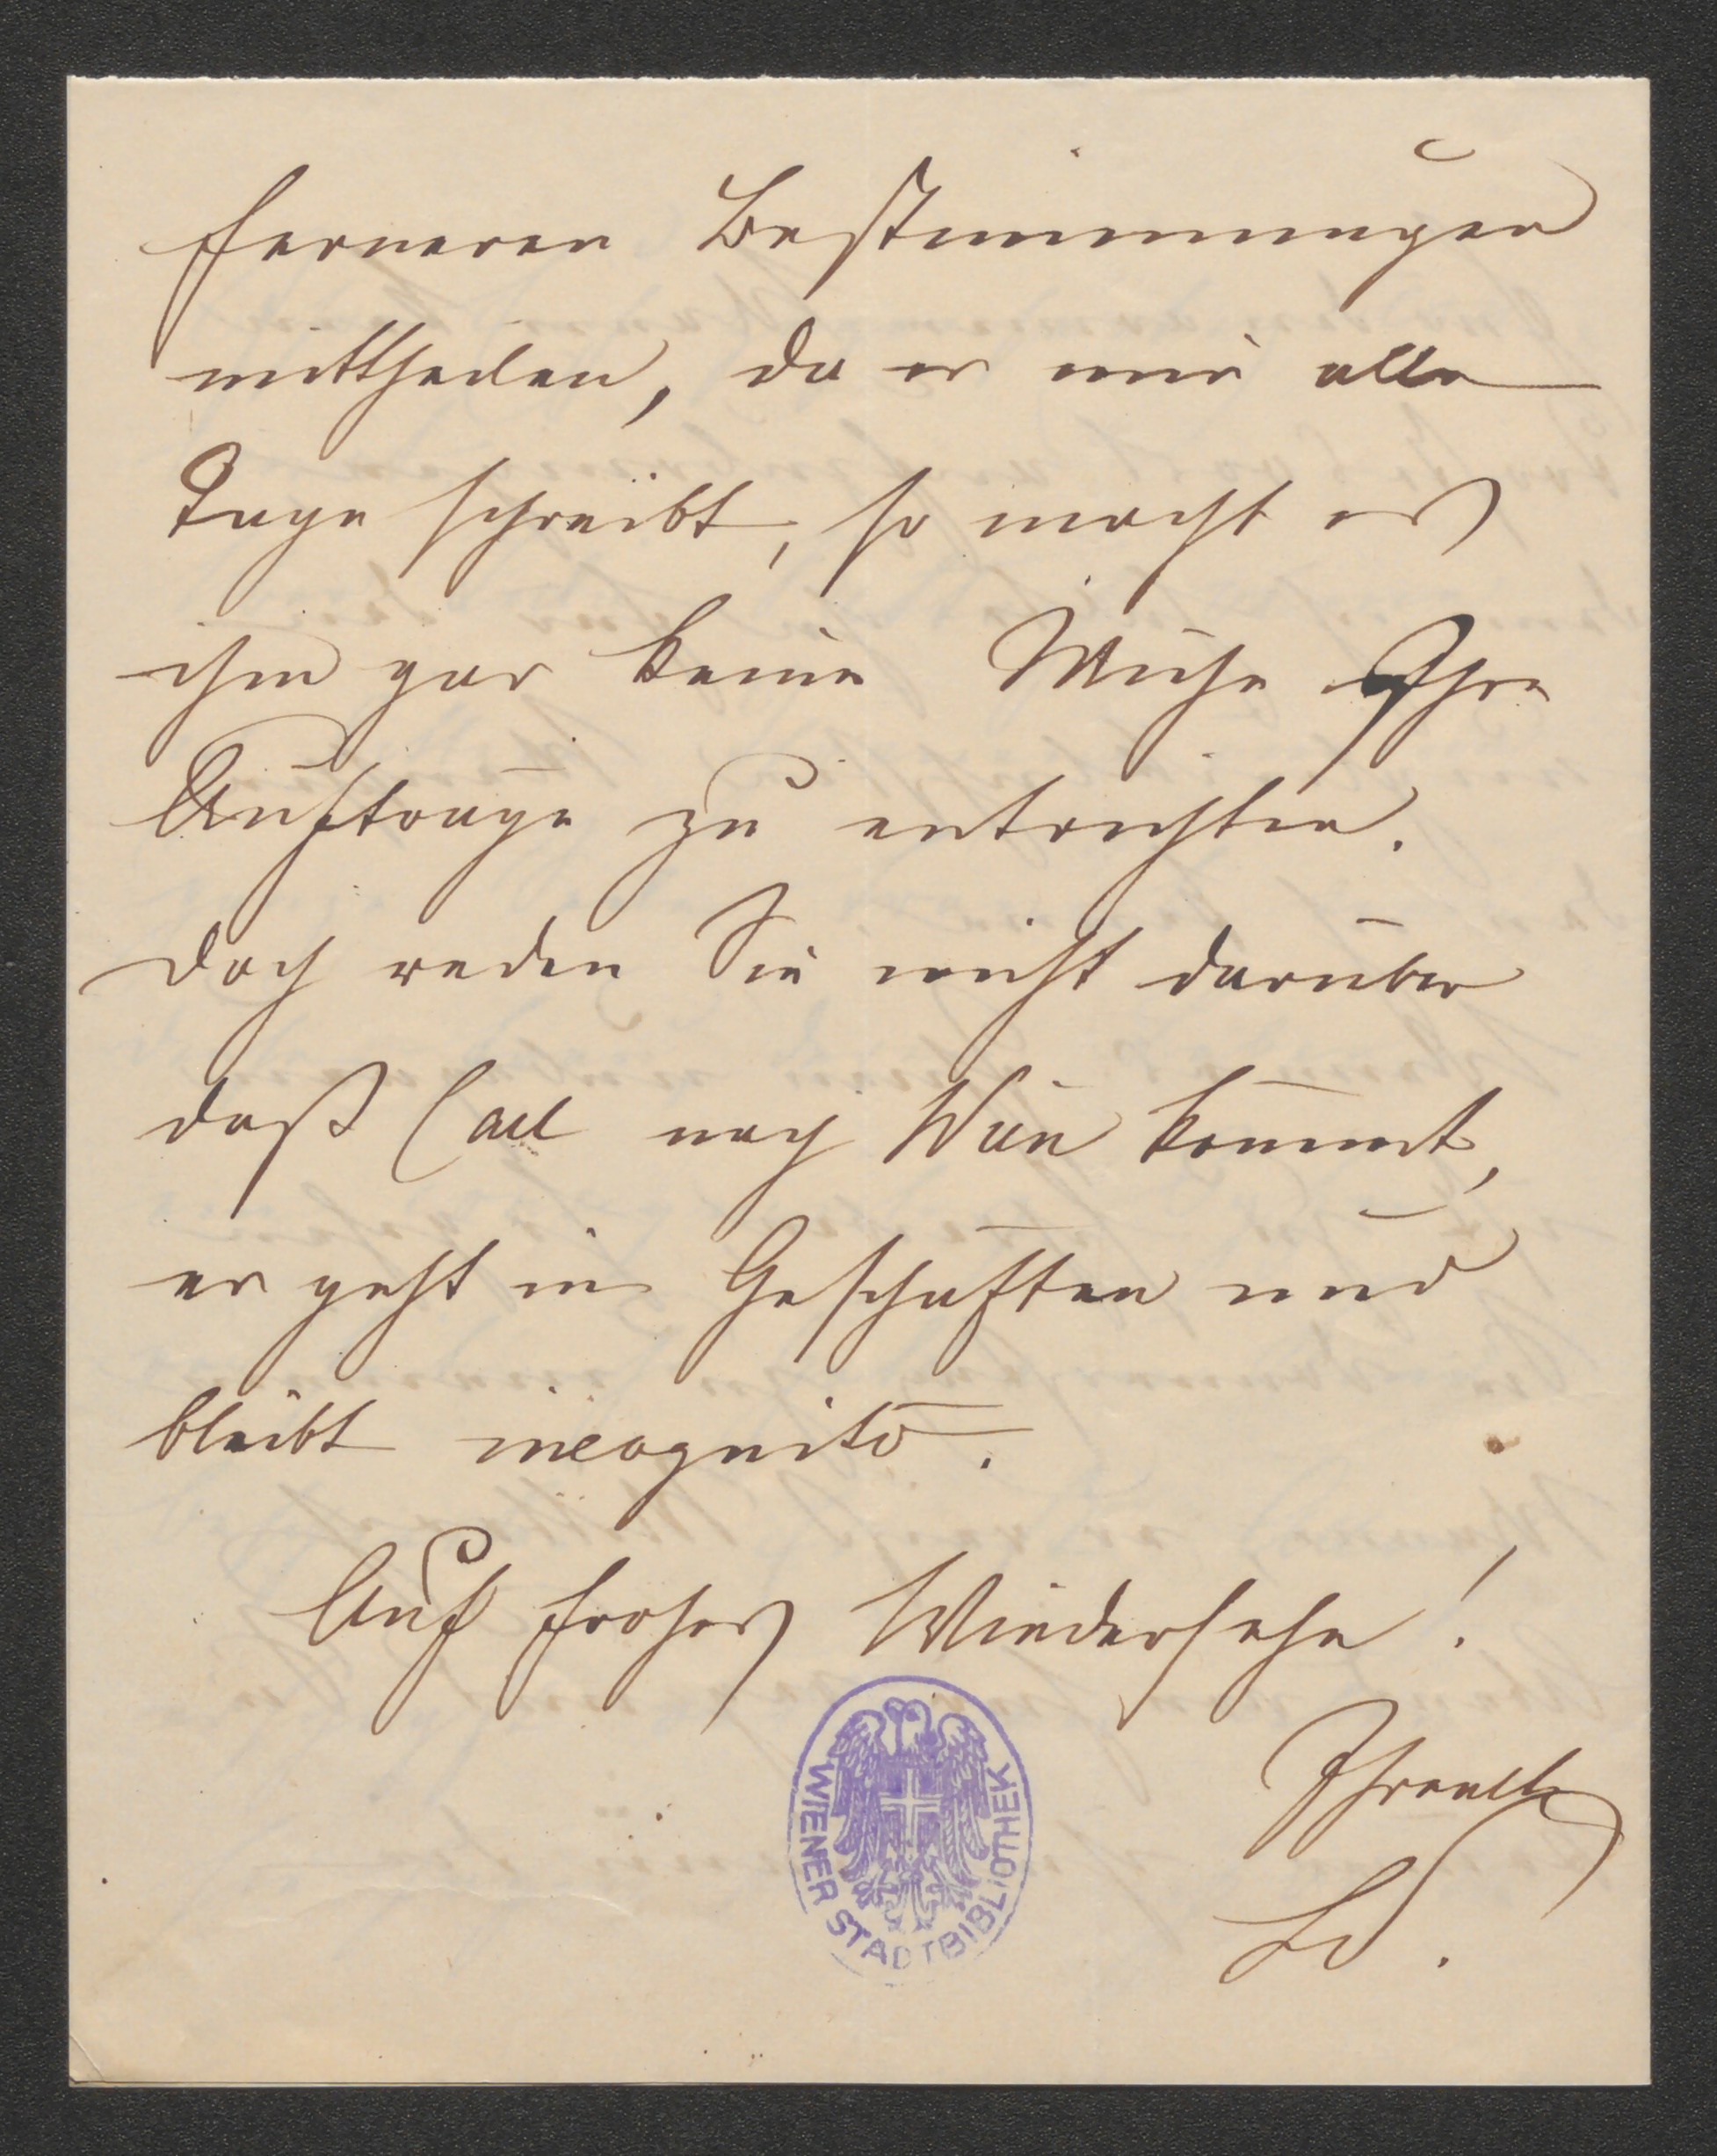 ferneren Bestimmungen
mittheilen, da er mir alle
Tage schreibt, so macht es
ihm gar keine Mühe Ihre
Aufträge zu entrichten.
Doch reden Sie nicht darüber
daß Carl nach Wien kommt,
er geht in Geschäften und
bleibt incognito.
Auf frohes Wiedersehn!
Ihre alte
WIENER STADTBIBLIOTHEK